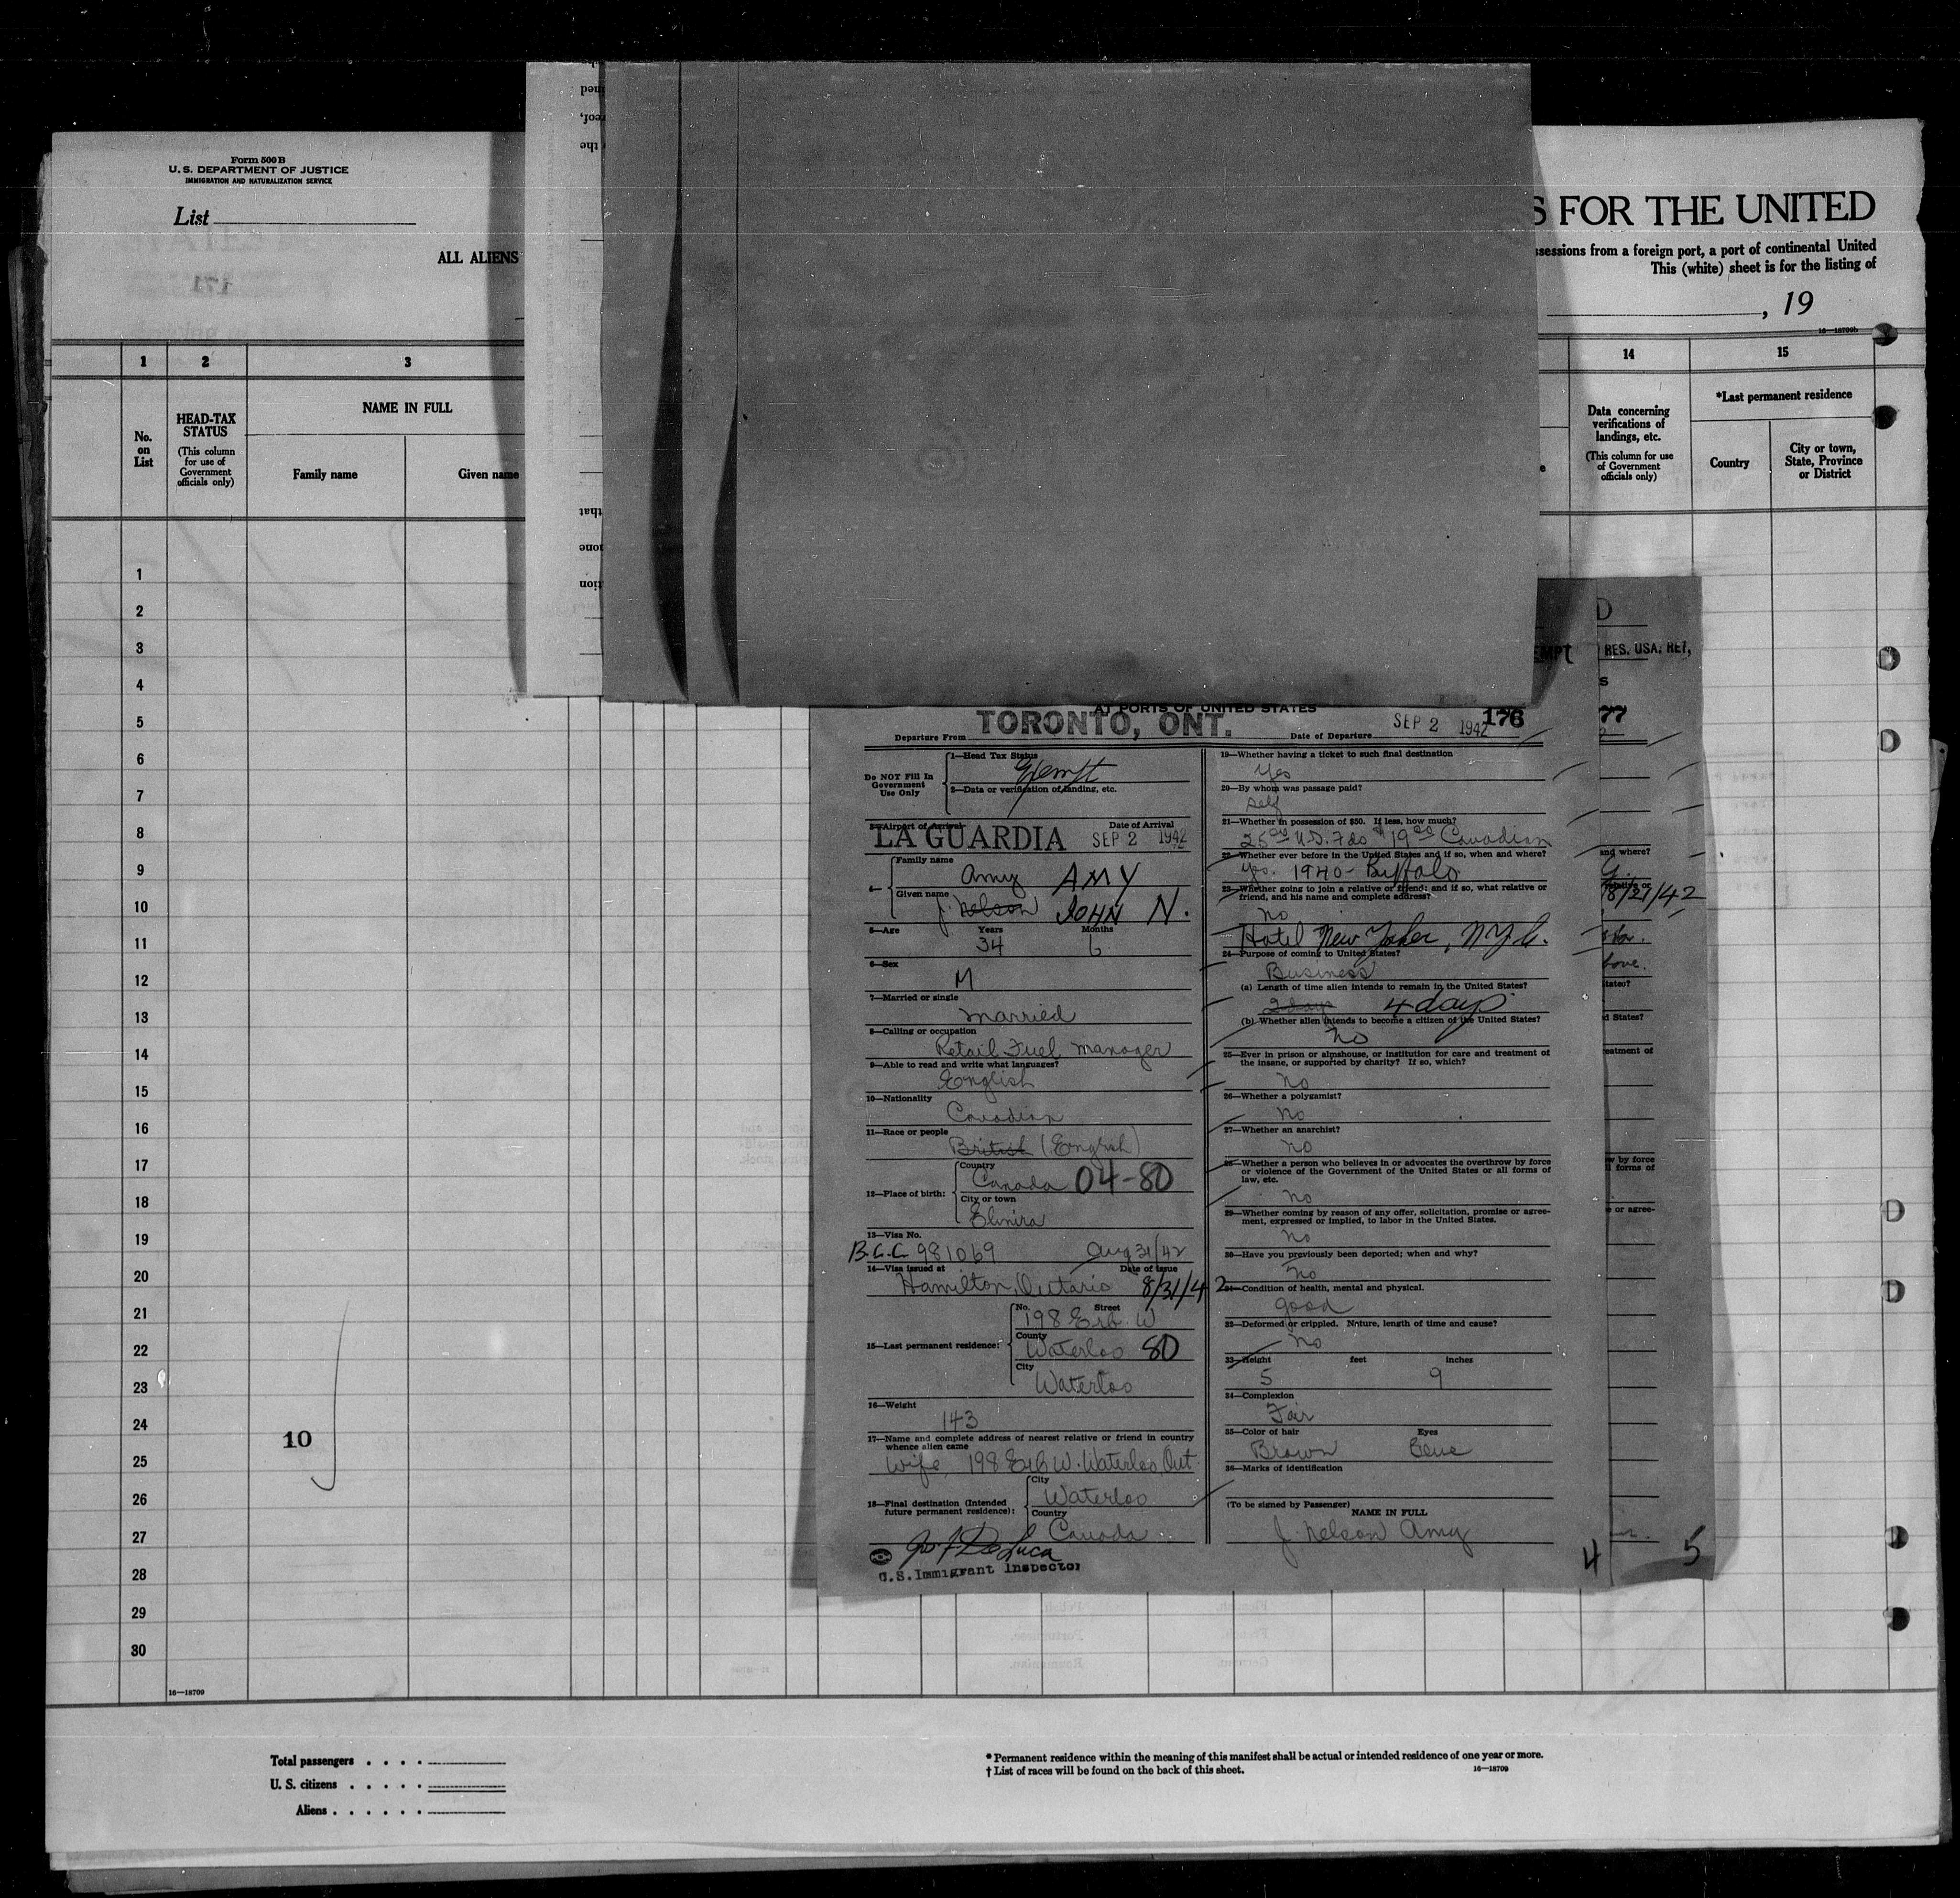 Form 500 B
U. S. DEPARTMENT OF JUSTICE
IMMIGRATION AND NATURALIZATION SERVICE
List
ALL ALIENS
S FOR THE UNITED
ssessions from a foreign port, a port of continental United
This (white) sheet is for the listing of
, 19
16—18709b
1 2 3 14 15
No. on List
HEAD-TAX STATUS
(This column for use of Government officials only)
NAME IN FULL
Family name
Given name
Data concerning verifications of landings, etc.
(This column for use of Government officials only)
*Last permanent residence
Country
City or town, State, Province or District
1
2
3
4
5
6
7
8
9
10
11
12
13
14
15
16
17
18
19
20
21
22
23
24
25
26
27
28
29
30
10
16—18709
AT PORTS OF UNITED STATES
Departure From TORONTO, ONT.
Date of Departure SEP 2 1942 176
Do NOT Fill In Government Use Only
1—Head Tax Status
Exempt
2—Data or verification of landing, etc.
3—Airport of Arrival Date of Arrival
LA GUARDIA SEP 2 1942
4—
Family name
Amy AMY
Given name
J. Nelson JOHN N.
5—Age Years Months
34 6
6—Sex
M
7—Married or single
Married
8—Calling or occupation
Retail Fuel Manager
9—Able to read and write what languages?
English
10—Nationality
Canadian
11—Race or people
British (English)
12—Place of birth:
Country
Canada 04-80
City or town
Elmira
13—Visa No.
B.C.C. 981069 Aug 31/42
14—Visa issued at Date of Issue
Hamilton, Ontario 8/31/42
15—Last permanent residence:
No. Street
198 Erb. W
County
Waterloo 80
City
Waterloo
16—Weight
143
17—Name and complete address of nearest relative or friend in country whence alien came
Wife, 198 Erb W. Waterloo, Ont.
18—Final destination (Intended future permanent residence):
City
Waterloo
Country
Canada
Jos F De Luca
U.S. Immigrant Inspector
19—Whether having a ticket to such final destination
Yes
20—By whom was passage paid?
Self
21—Whether in possession of $50. If less, how much?
25 00 U.S. Fds $19 00 Canadian
22—Whether ever before in the United States and if so, when and where?
Yes. 1940 - Buffalo
23—Whether going to join a relative or friend; and if so, what relative or friend, and his name and complete address?
No
Hotel New Yorker, N.Y.C.
24—Purpose of coming to United States?
Business
(a) Length of time alien intends to remain in the United States?
2 days 4 days
(b) Whether alien intends to become a citizen of the United States?
No
25—Ever in prison or almshouse, or institution for care and treatment of the insane, or supported by charity? If so, which?
No
26—Whether a polygamist?
No
27—Whether an anarchist?
No
28—Whether a person who believes in or advocates the overthrow by force or violence of the Government of the United States or all forms of law, etc.
No
29—Whether coming by reason of any offer, solicitation, promise or agreement, expressed or implied, to labor in the United States.
No
30—Have you previously been deported; when and why?
No
31—Condition of health, mental and physical.
Good
32—Deformed or crippled. Nature, length of time and cause?
No
33—Height feet inches
5 9
34—Complexion
Fair
35—Color of hair Eyes
Brown Blue
36—Marks of identification
(To be signed by Passenger)
NAME IN FULL
J. Nelson Amy
4
RES. USA. RET,
77
and where?
8/21/42
States?
d States?
eatment of
w by force
l forms of
e or agree-
5
Total passengers
U. S. citizens
Aliens
* Permanent residence within the meaning of this manifest shall be actual or intended residence of one year or more.
† List of races will be found on the back of this sheet.
16—18709